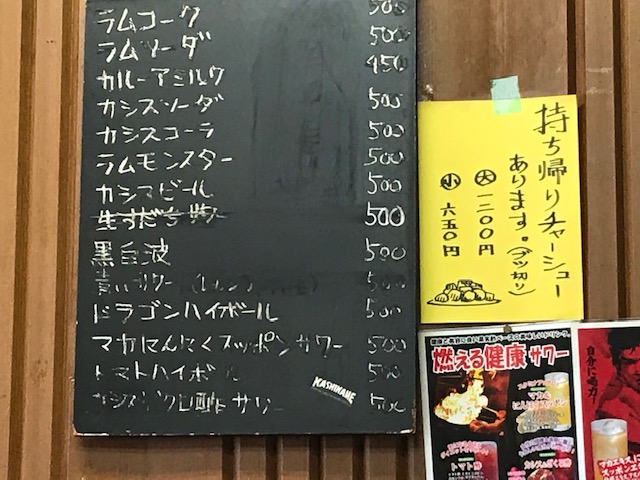 ラムコーク 500
ラムソーダ 500
カルーアミルク 450
カシスソーダ 500
カシスコーラ 500
ラムモンスター 500
カシマビール 500
生すだちサワー 500
黒白波 500
青いサワー 500
ドラゴンハイボール 500
マカにんにくスッポンサワー 500
トマトハイボール 500
500
KASHIKAME
持ち帰りチャーシュー
あります。(ブツ切り)
大 一二〇〇円
小 六五〇円
燃える健康サワー
マカ&
にんにくスッポン
トマト酢
カシス&ざくろ酢
自分に喝力!
マカエキスに
スッポンエキス